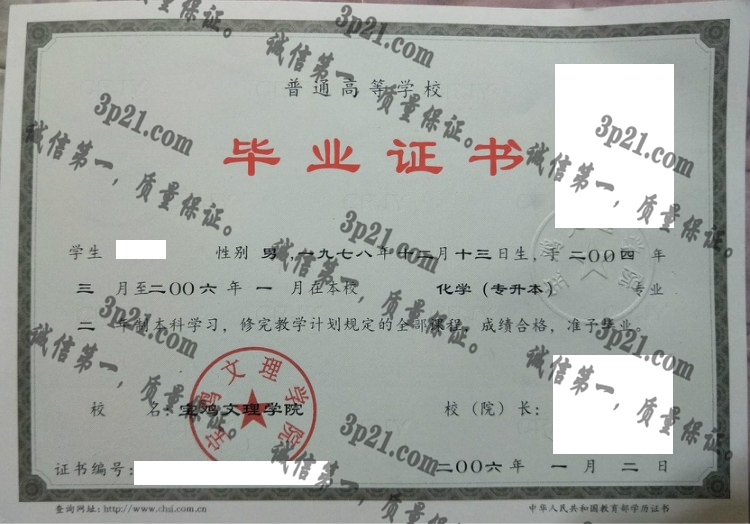 普通高等学校
毕业证书
学生 性别 男 ,一九七八年十二月十三日生,于二〇〇四年
三 月至二〇〇六年 一 月在本校 化学(专升本) 专业
二 年制本科学习,修完教学计划规定的全部课程,成绩合格,准予毕业。
校 名:宝鸡文理学院 校(院)长:
宝鸡文理学院
证书编号: 二〇〇六年 一 月 二 日
查询网址:http://www.chsi.com.cn 中华人民共和国教育部学历证书
3p21.com
诚信第一,质量保证。
3p21.com
诚信第一,质量保证。
3p21.com
诚信第一,质量保证。
3p21.com
诚信第一,质量保证。
3p21.com
诚信第一,质量保证。
3p21.com
诚信第一,质量保证。
3p21.com
诚信第一,质量保证。
3p21.com
诚信第一,质量保证。